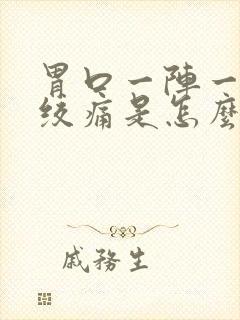 胃口一陣一
絞痛是怎麼
戚務生